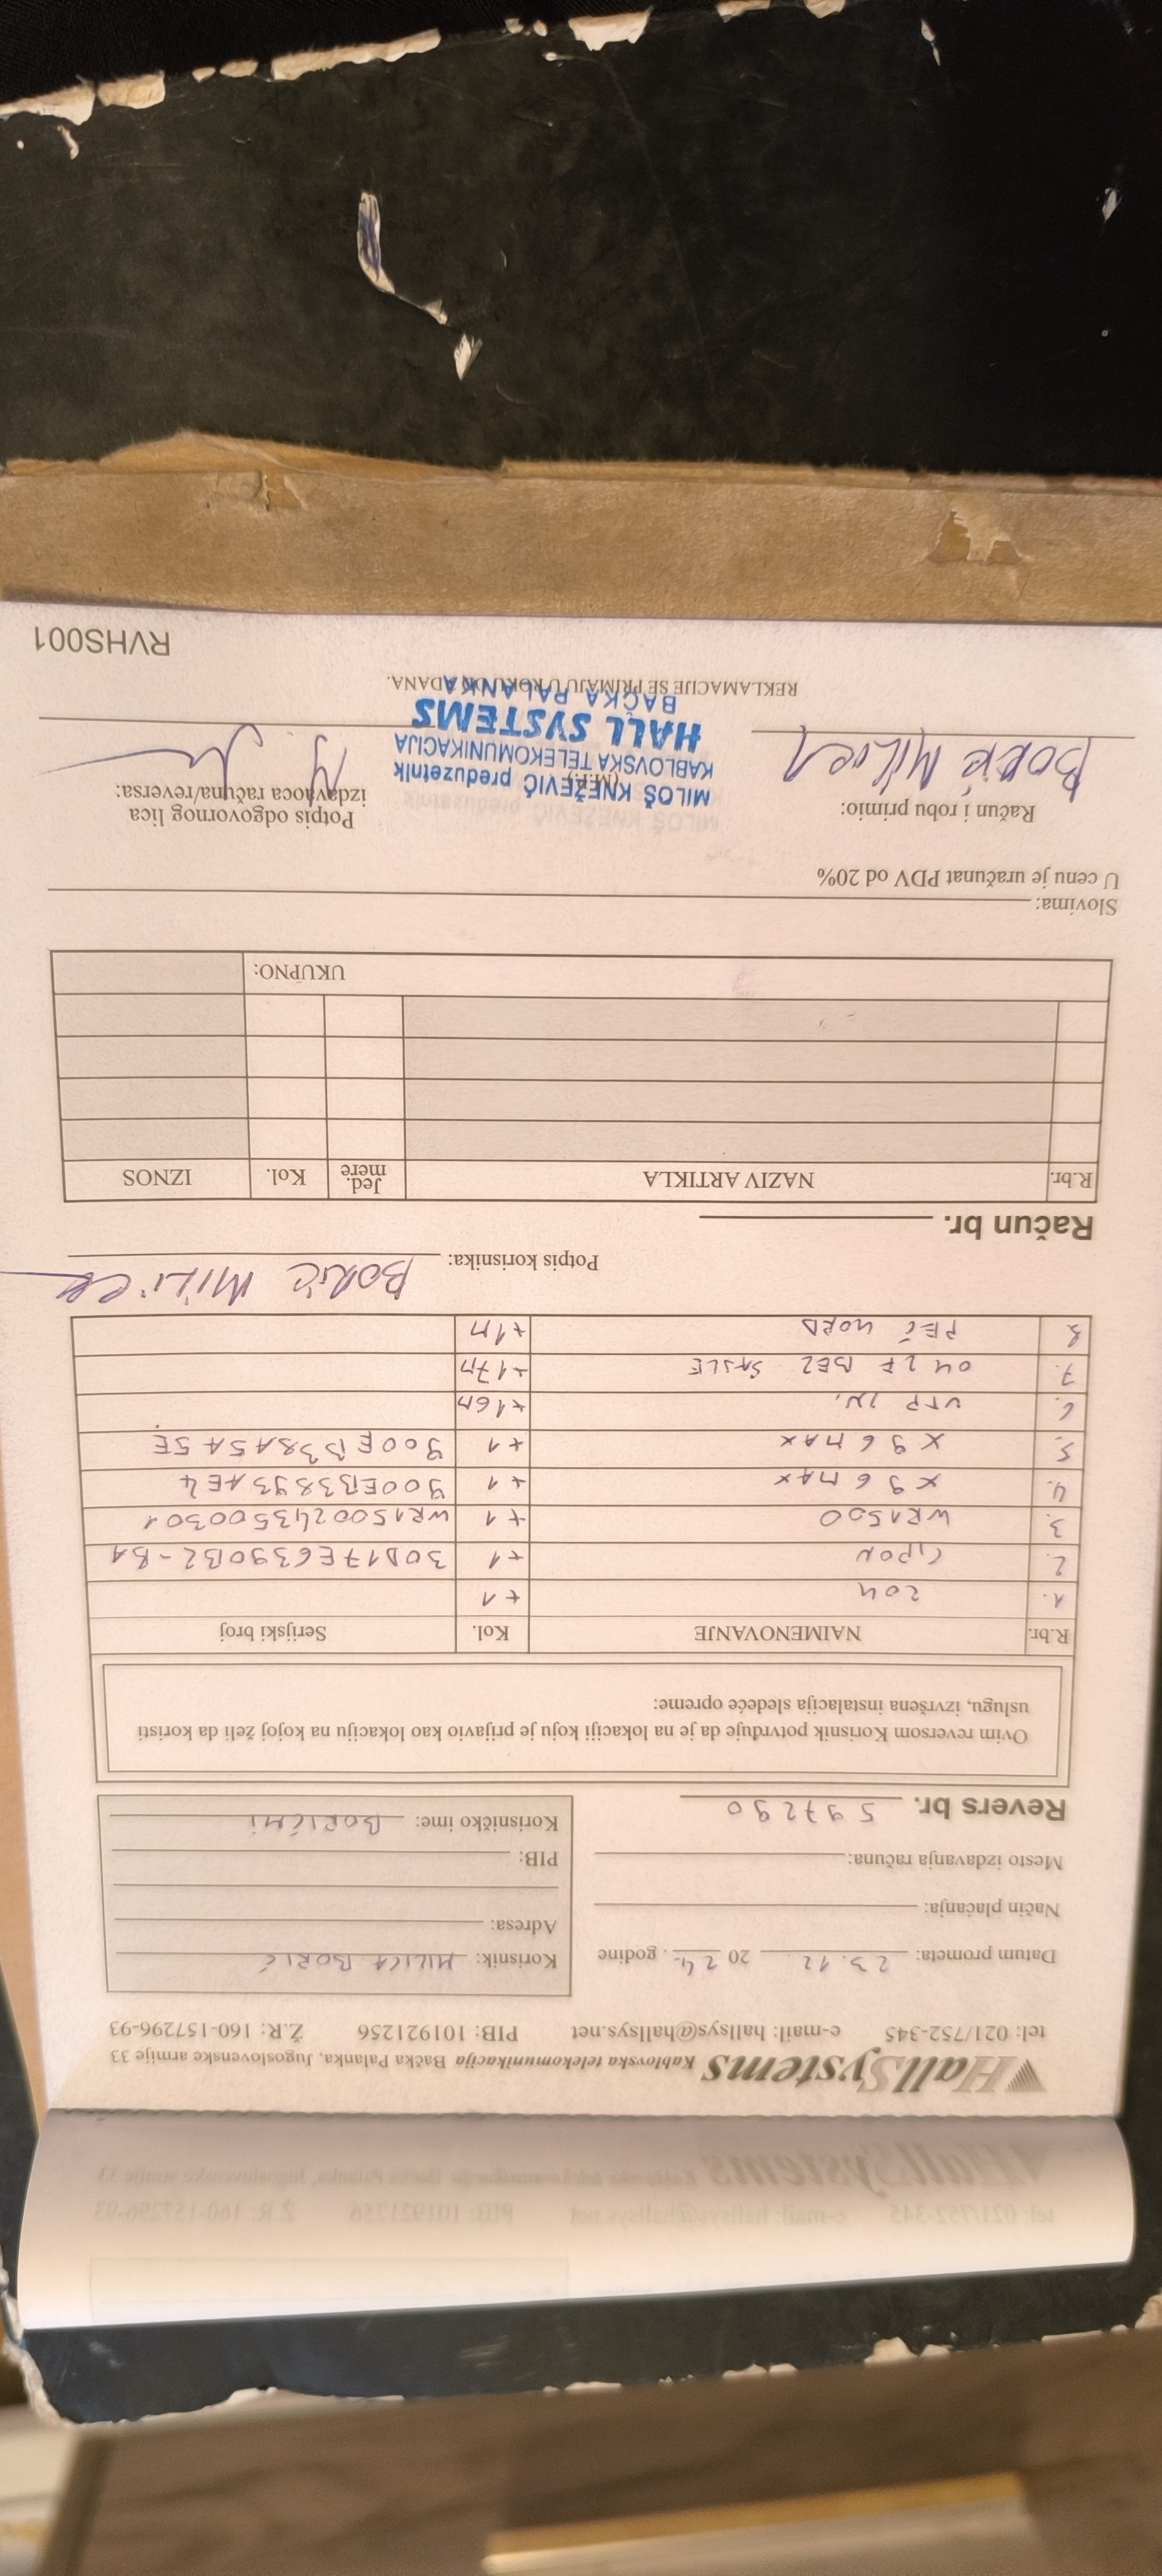 HallSystems Kablovska telekomunikacija Bačka Palanka, Jugoslovenske armije 33
tel: 021/752-345 e-mail: hallsys@hallsys.net PIB: 101921256 Ž.R: 160-157296-93
Datum prometa: 23.12. 20 24. godine
Način plaćanja:
Mesto izdavanja računa:
Korisnik: MILICA BORIĆ
Adresa:
PIB:
Korisničko ime: BORIĆMI
Revers br. 597290
Ovim reversom Korisnik potvrđuje da je na lokaciji koju je prijavio kao lokaciju na kojoj želi da koristi
uslugu, izvršena instalacija sledeće opreme:
R.br. NAIMENOVANJE Kol. Serijski broj
1. ZOU +1
2. GPON +1 30D17E6390B2-BA
3. WR1500 +1 WR1500243500301
4. X96 MAX +1 900EB3893AE4
5. X96 MAX +1 900EB38A5A5E
6. UTP IN. +16M
7. OU 2F BEZ SAJLE +17M
8. PEČ KORD +1M
Potpis korisnika: BORIĆ MILICA
Račun br.
R.br. NAZIV ARTIKLA Jed. mere Kol. IZNOS
UKUPNO:
Slovima:
U cenu je uračunat PDV od 20%
Račun i robu primio:
Borić Milica
(M.P.)
MILOŠ KNEŽEVIĆ preduzetnik
KABLOVSKA TELEKOMUNIKACIJA
HALL SYSTEMS
BAČKA PALANKA
Potpis odgovornog lica
izdavaoca računa/reversa:
REKLAMACIJE SE PRIMAJU U ROKU OD 8 DANA.
RVHS001